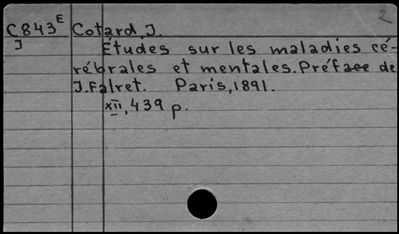 2
C843E Cotard, J.
J Études sur les maladies cé-
rébrales et mentales. Préface de
J. Falret. Paris, 1891.
XII, 439 p.